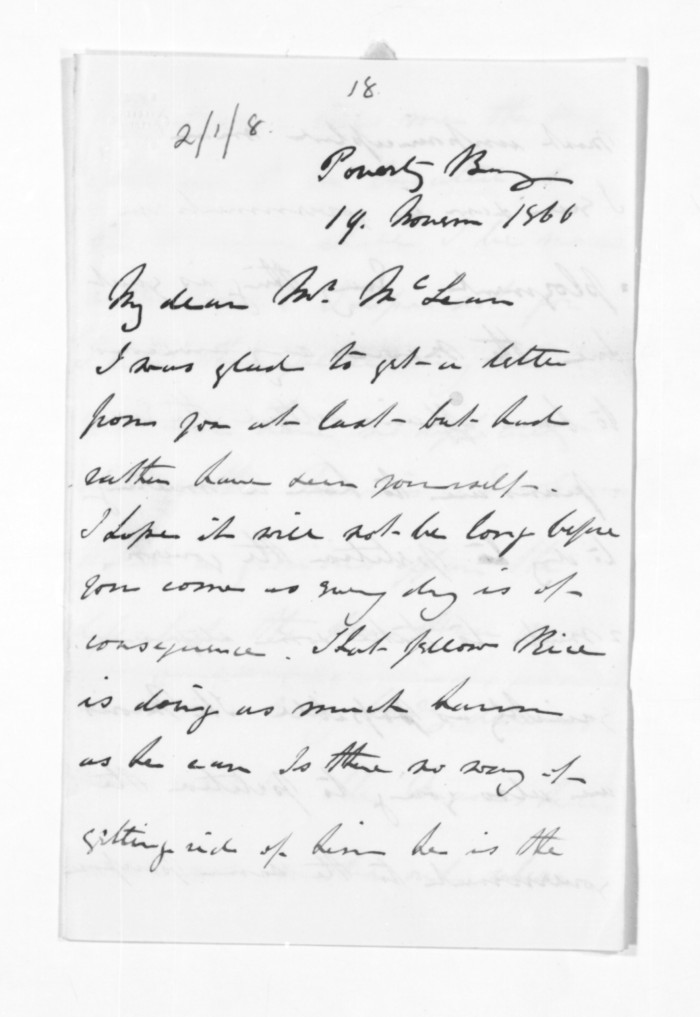 18
2/1/8.
Poverty Bay
19. Novem 1866
My dear Mr. McLean
I was glad to get a letter
from you at last - but had
rather have seen yourself -
I hope it will not be long before
you come as every day is of
consequence. That fellow Rice
is doing as much harm
as he can Is there no way of
getting rid of him he is the